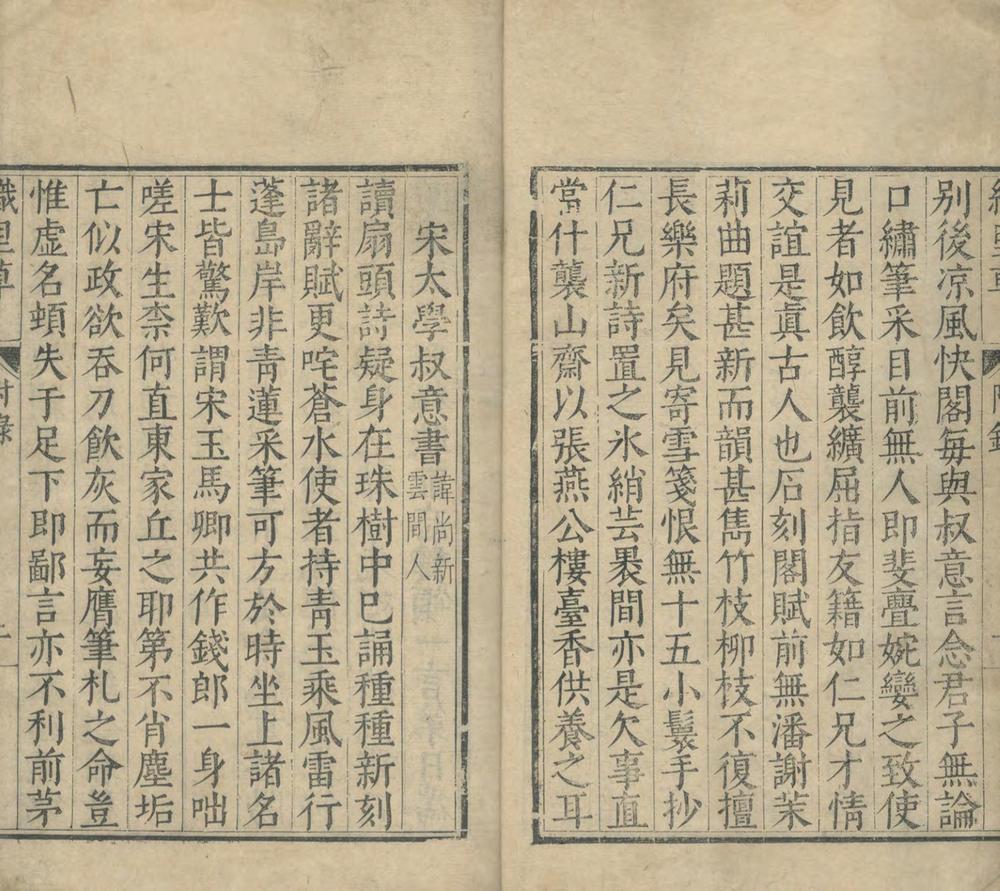 别後凉風快閣每與叔意言念君子無論
口繡筆采目前無人即斐亹婉孌之致使
見者如飲醇襲纊屈指友籍如仁兄才情
交誼是眞古人也石刻閣賦前無潘謝茉
莉曲題甚新而韻甚雋竹枝柳枝不復擅
長樂府矣見寄雪箋恨無十五小鬟手抄
仁兄新詩置之氷綃芸褁間亦是欠事直
當什襲山齋以張燕公樓臺香供養之耳
宋太學叔意書 諱尚新
雲間人
讀扇頭詩疑身在珠樹中巳誦種種新刻
諸辭賦更咤蒼水使者持青玉乘風雷行
蓬島岸非青蓮采筆可方於時坐上諸名
士皆驚歎謂宋玉馬卿共作錢郎一身咄
嗟宋生柰何直東家丘之耶第不肖塵垢
亡似政欲吞刀飲灰而妄膺筆札之命豈
惟虛名頓失于足下即鄙言亦不利前茅
草
附錄